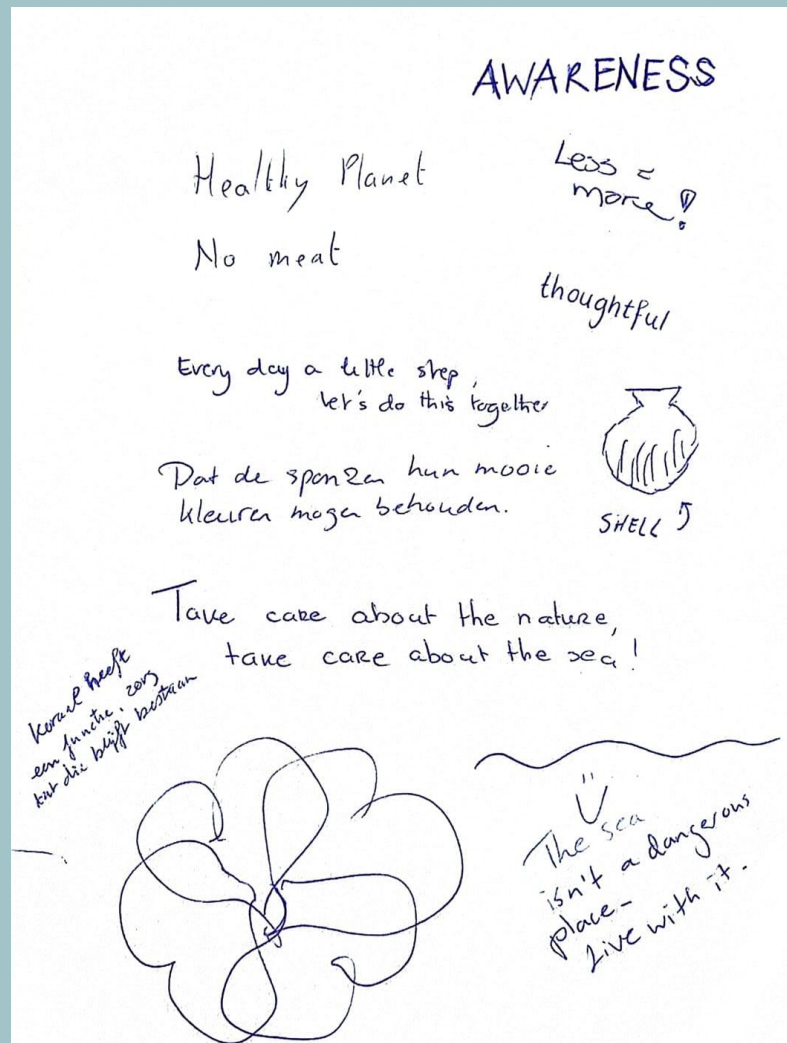 AWARENESS
Healthy Planet
Less =
more!
No meat
thoughtful
Every day a little step,
let's do this together
Dat de sponzen hun mooie
kleuren mogen behouden.
SHELL
Take care about the nature,
take care about the sea!
Koraal heeft
een functie, zorg
dat die blijft bestaan
The sea
isn't a dangerous
place-
Live with it.